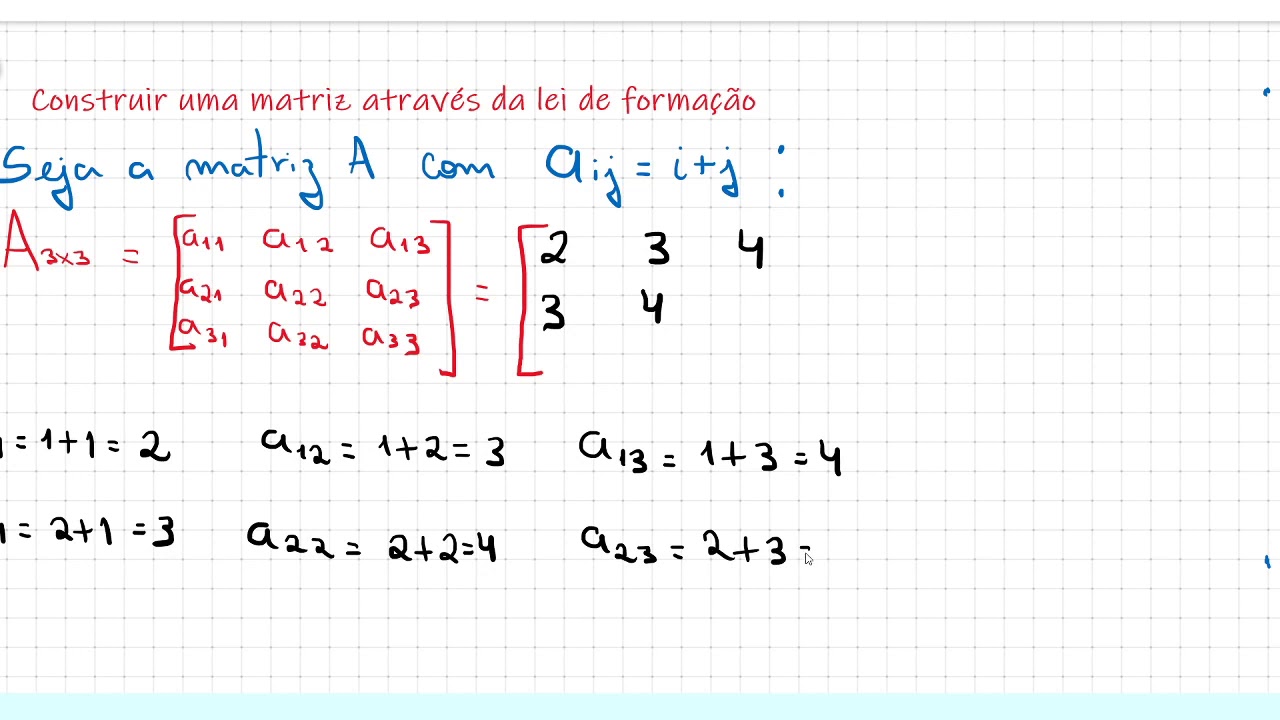 Construir uma matriz através da lei de formação
Seja a matriz A com aij = i+j :
A3x3 = [a11 a12 a13 = [2 3 4
a21 a22 a23 3 4
a31 a32 a33]
1 = 1+1 = 2 a12 = 1+2 = 3 a13 = 1+3 = 4
1 = 2+1 = 3 a22 = 2+2=4 a23 = 2+3 =